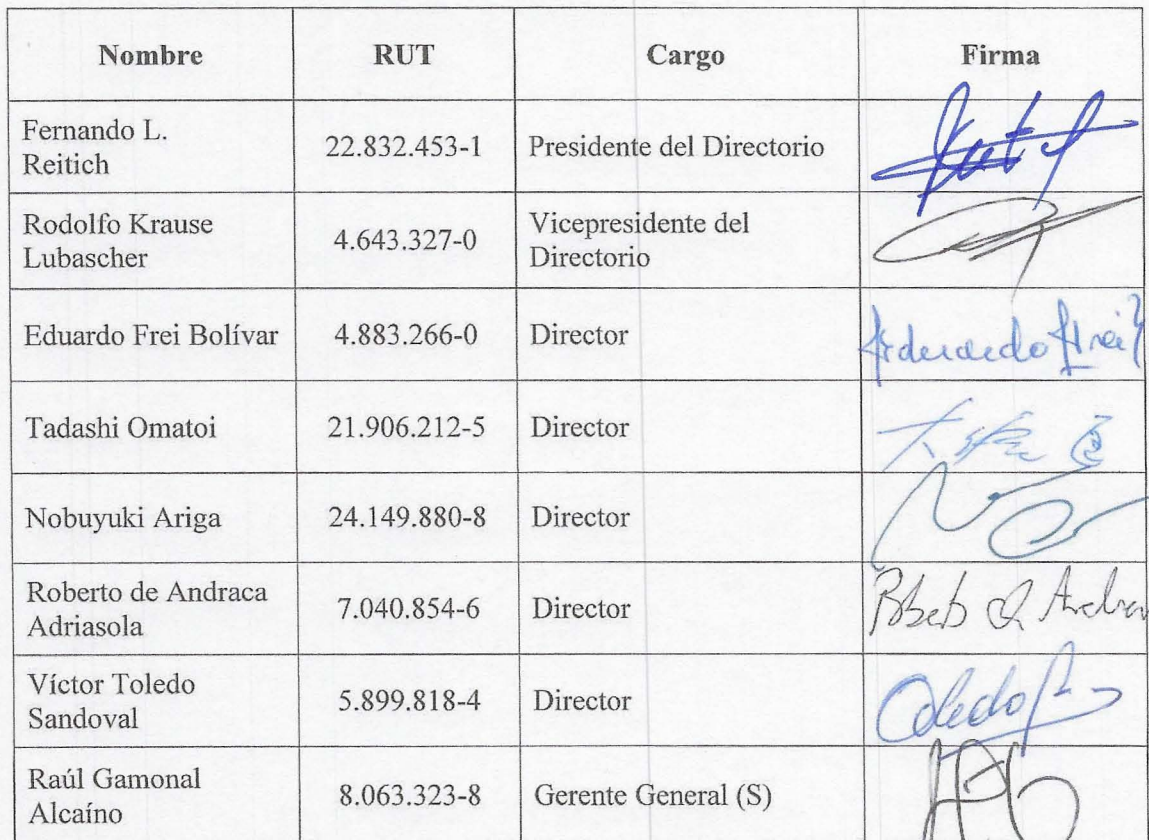 Nombre RUT Cargo Firma
Fernando L.
Reitich
22.832.453-1 Presidente del Directorio
Rodolfo Krause
Lubascher
4.643.327-0
Vicepresidente del
Directorio
Eduardo Frei Bolívar 4.883.266-0 Director Eduardo Frei
Tadashi Omatoi 21.906.212-5 Director
Nobuyuki Ariga 24.149.880-8 Director
Roberto de Andraca
Adriasola
7.040.854-6 Director
Víctor Toledo
Sandoval
5.899.818-4 Director
Raúl Gamonal
Alcaíno
8.063.323-8 Gerente General (S)